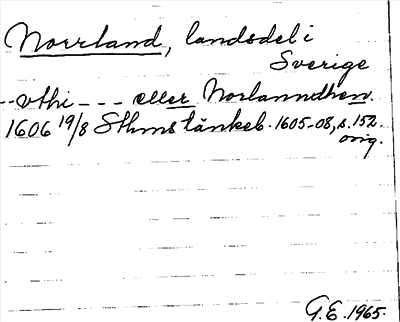 Norrland, landsdel i
Sverige
-- vthi --- eller Norlanndhen.
1606 19/8 Sthms tänkeb. 1605-08, s. 152.
orig.
G.E. 1965.